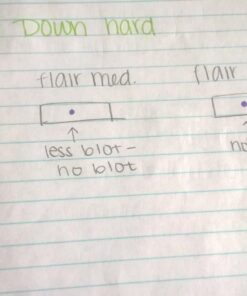 Down hard
flair med. flair
less blot- no
no blot